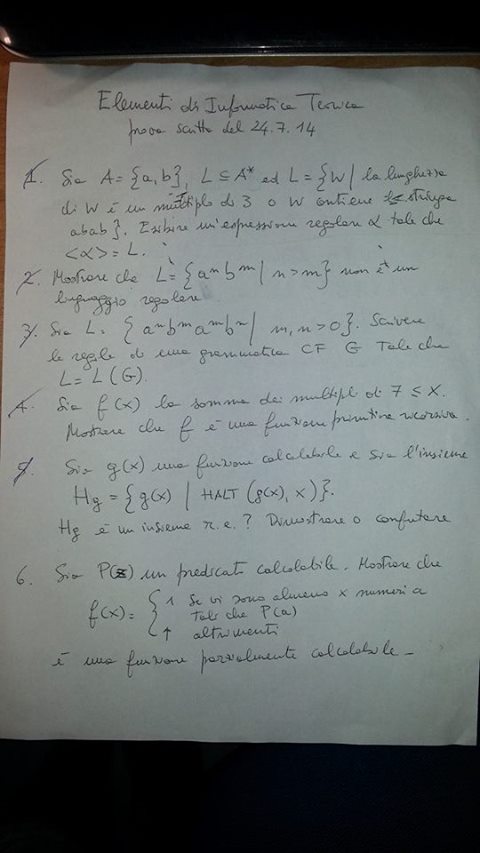 Elementi di Informatica Teorica
prova scritta del 24.7.14
1. Sia A = {a, b}, L ⊆ A* ed L = {W | la lunghezza
di W è un multiplo di 3 o W contiene la stringa
abab}. Esibire un'espressione regolare α tale che
<α> = L.
2. Mostrare che L = {aⁿ bᵐ | n > m} non è un
linguaggio regolare
3. Sia L = {aⁿ bᵐ aᵐ bⁿ | m, n > 0}. Scrivere
le regole di una grammatica CF G tale che
L = L(G).
4. Sia f(x) la somma dei multipli di 7 ≤ X.
Mostrare che f è una funzione primitiva ricorsiva.
5. Sia g(x) una funzione calcolabile e sia l'insieme
Hg = {g(x) | HALT (g(x), x)}.
Hg è un insieme r.e.? Dimostrare o confutare
6. Sia P(z) un predicato calcolabile. Mostrare che
f(x) = { 1 se vi sono almeno x numeri a
tali che P(a)
↑ altrimenti
è una funzione parzialmente calcolabile –